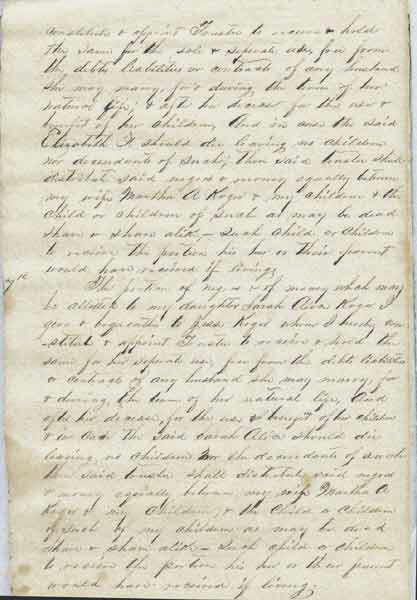 constitute & appoint Trustee to receive & hold
the same for the sole & separate use, free from
the debts liabilities or contracts of any husband
she may marry, for & during the term of her
natural life, & aft her decease for the use &
benefit of her children, And in case the said
Elizabeth F should die leaving no children
nor descendants of Such, then said trustee shall
distribute said negroes & money equally between
my wife Martha A Koger & my children & the
Child or children of Such as may be dead
share & share alike — Such child or children
to receive the portion his her or their parent
would have received if living.
The portion of negroes & of money which may
be allotted to my daughter Sarah Alica Koger I
give & bequeath to Koger whom I hereby con
stitute & appoint Trustee to receive & hold the
same for her separate use free from the debts liabilities
or contracts of any husband she may marry, for
& during, the term of her natural life, And
after her decease, for the use & benefit of her children
& in case the said Sarah Alica should die
leaving, no children nor the descendants of such
then said trustee shall distribute said negroes
& money equally between my wife Martha A
Koger & my children, & the child or children
of such of my children as may be dead
share & share alike — Such child or children
to receive the portion his her or their parent
would have received if living.